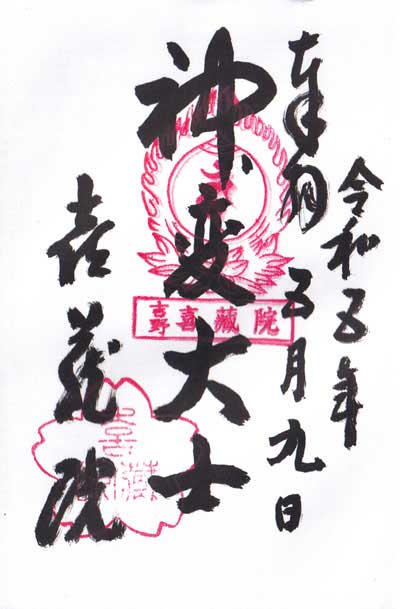 令和五年
奉拝 五月九日
神変大士
吉野 喜蔵院
喜蔵院